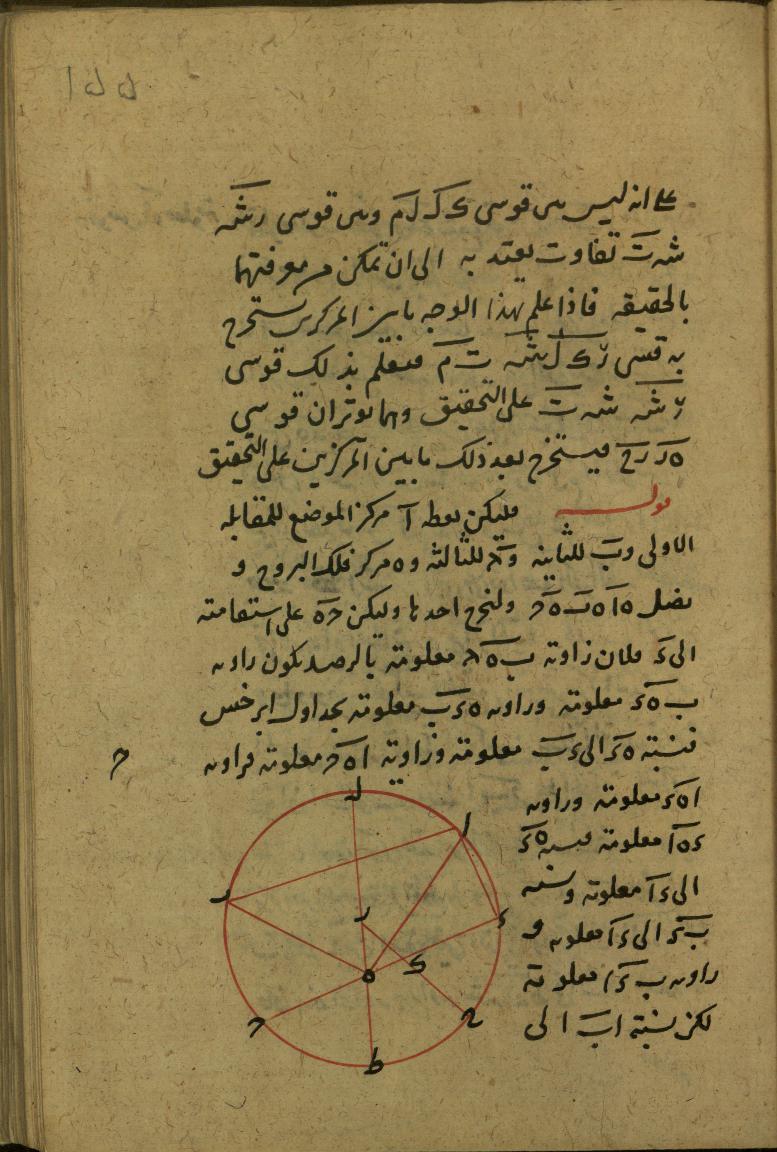 على انه ليس بين قوسى ك ل م وبين قوسى ر ش
ش ت تفاوت يعتد به الى ان تمكن من معرفتهما
بالحقيقه فاذا علم بهذا الوجه ما بين المركزين يستخرج
به قسى ش ت م فيعلم بذلك قوسى
ر ش ش ت على التحقيق وهما يوتران قوسي
ه ر ر ح فيستخرج بعد ذلك ما بين المركزين على التحقيق
فليكن نقطه آ مركز الموضع للمقابله
الاولى وب للثانيه وح للثالثه وه مركز فلك البروج و
نصل ه ا ه ب ه ح ولنخرج احدها وليكن ح ه على استقامته
الى ء فلان زاوية ب ه ح معلومة بالرصد تكون زاوية
ب ه ء معلومة وزاوية ه ء ب معلومة بجداول ابرخس
فنسبة ه ء الى ء ب معلومة وزاوية ا ه ح معلومة فزاوية
ا ه ء معلومة وزاوية
ء ه ا معلومة فنسبة ه ء
الى ء ا معلومة ونسبة
ب ء الى ء ا معلومة و
زاوية ب ء ا معلومة
لكن نسبة اب الى
ح
ل
ا
ء
ب
ر
ه
ك
ح
ح
ط